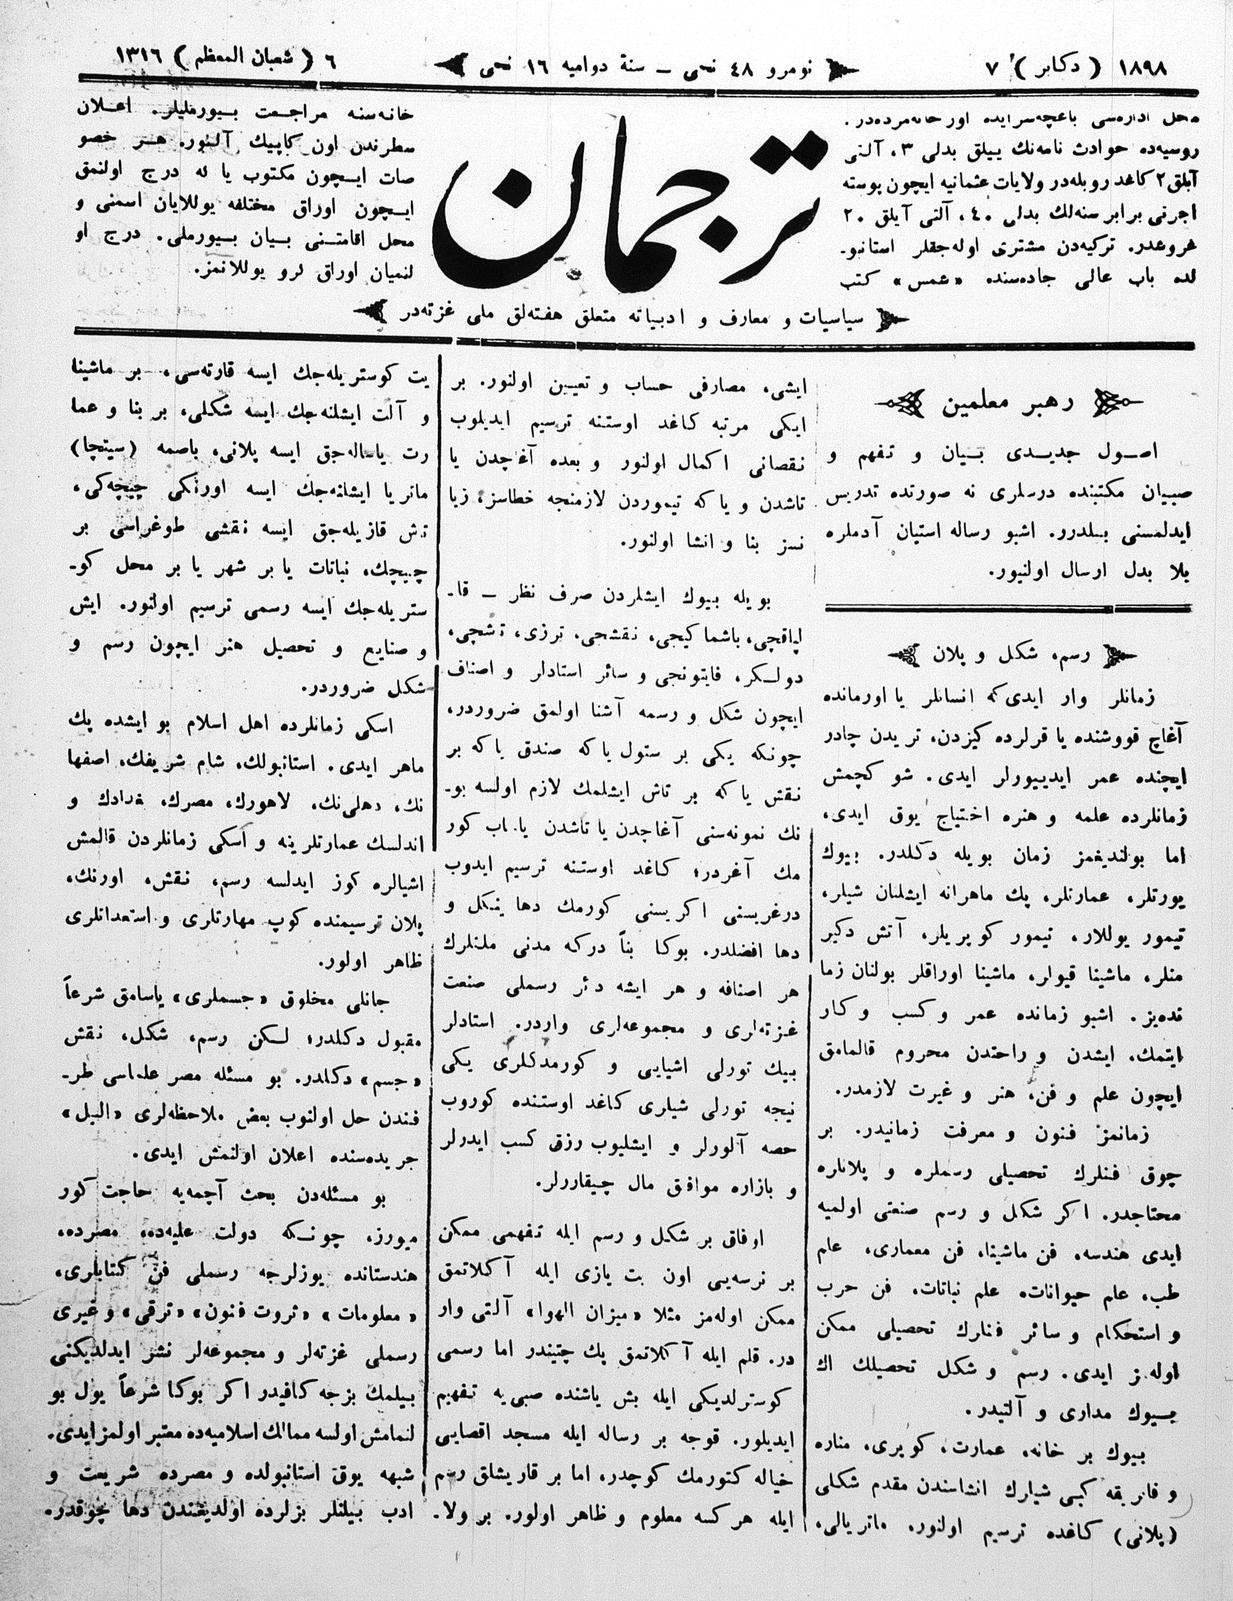 ١٨٩٨ (دكابر) ٧
نومرو ٤٨ نجى – سنهٔ دواميه ١٦ نجى
٦ (شعبان المعظم) ١٣١٦
محل اداره‌سى باغچه‌سرايده اور خانه‌مزده‌در.
روسيه‌ده حوادث نامه‌نك ييللق بدلى ٣، آلتى
آيلق ٢ كاغد روبله‌در ولايات عثمانيه ايچون پوسته
اجرتى برابر سنه‌لك بدلى ٤٠، آلتى آيلق ٢٠
غروعدر. تركيه‌دن مشترى اوله‌جقلر استانبو-
لده باب عالى جاده‌سنده «عمس» كتب
ترجمان
خانه‌سنه مراجعت بيورمليلر. اعلان
سطرندن اون كاپيك آلنور. هر خصو
صات ايچون مكتوب يا له درج اولنمق
ايچون اوراق مختلفه يوللايان اسمنى و
محل اقامتنى بيان بيورملى. درج او
لنميان اوراق لرو يوللانمز.
سياسيات و معارف و ادبياته متعلق هفته‌لق ملى غزته‌در
رهبر معلمين
اصول جديدى بيان و تفهم و
صبيان مكتبنده درسلرى نه صورتده تدريس
ايدلمسنى بيلدرر. اشبو رساله استيان آدملره
بلا بدل ارسال اولنيور.
رسم، شكل و پلان
زمانلر وار ايدى كه انسانلر يا اورمانده
آغاچ قووشنده يا قرلرده كيزدن، تريدن چادر
ايچنده عمر ايدييورلر ايدى. شو كچمش
زمانلرده علمه و هنره احتياج يوق ايدى،
اما بولنديغمز زمان بويله دكلدر. بيوك
يورتلر، عمارتلر، پك ماهرانه ايشلنان شيلر،
تيمور يوللار، تيمور كوپريلر، آتش دكير
منلر، ماشينا قيولر، ماشينا اوراقلر بولنان زما
نده‌يز. اشبو زمانده عمر و كسب و كار
ايتمك، ايشدن و راحتدن محروم قالمامق
ايچون علم و فن، هنر و غيرت لازمدر.
زمانمز فنون و معرفت زمانيدر. بر
چوق فنلرك تحصيلى رسملره و پلانلره
محتاجدر. اكر شكل و رسم صنعتى اولميه
ايدى هندسه، فن ماشينا، فن معمارى، علم
طب، علم حيوانات، علم نباتات، فن حرب
و استحكام و سائر فنلرك تحصيلى ممكن
اوله‌مز ايدى. رسم و شكل تحصيلك اك
بيوك مدارى و آلتيدر.
بيوك بر خانه، عمارت، كوپرى، مناره
و فابريقه كبى شيلرك انشاسندن مقدم شكلى
(پلانى) كاغده ترسيم اولنور. ماتريالى،
ايشى، مصارفى حساب و تعيين اولنور. بر
ايكى مرتبه كاغد اوستنه ترسيم ايديلوب
نقصانى اكمال اولنور و بعده آغاچدن يا
تاشدن و يا كه تيموردن لازمنجه خطاسز، زيا
نسز بنا و انشا اولنور.
بويله بيوك ايشلردن صرف نظر – قا-
لپاقچى، باشماكيجى، نقشجى، ترزى، تشچى،
دولكر، فايتونجى و سائر استادلر و اصناف
ايچون شكل و رسمه آشنا اولمق ضروردر،
چونكه يكى بر ستول يا كه صندق يا كه بر
نقش يا كه بر تاش ايشلمك لازم اولسه بو-
نك نمونه‌سنى آغاچدن يا تاشدن ياپاب كور
مك آغردر؛ كاغد اوستنه ترسيم ايدوب
درغريسنى اكريسنى كورمك دها ينكل و
دها افضلدر. بوكا بناً دركه مدنى ملتلرك
هر اصنافه و هر ايشه دئر رسملى صنعت
غزته‌لرى و مجموعه‌لرى واردر. استادلر
بيك تورلى اشيايى و كورمدكلرى يكى
نيجه تورلى شيلرى كاغد اوستنده كوروب
حصه آلورلر و ايشليوب رزق كسب ايدرلر
و بازاره موافق مال چيقاررلر.
اوفاق بر شكل و رسم ايله تفهمى ممكن
بر نرسه‌يى اون بت يازى ايله آكلاتمق
ممكن اوله‌مز مثلا «ميزان الهوا» آلتى وار
در. قلم ايله آكلاتمق پك چتيندر اما رسمى
كوسترلديكى ايله بش ياشنده صبى‌يه تفهيم
ايديلور. قوجه بر رساله ايله مسجد اقصايى
خياله كتورمك كوچدر، اما بر قاريشلق رسم
ايله هر كسه معلوم و ظاهر اولور. بر ولا-
يت كوستريله‌جك ايسه قارته‌سى، بر ماشينا
و آلت ايشلنه‌جك ايسه شكلى، بر بنا و عما
رت ياساله‌جق ايسه پلانى، باصمه (سيتچا)
ماتريا ايشلنه‌جك ايسه اورنكى چيچه‌كى،
تش قازيله‌جق ايسه نقشى طوغراسى بر
چيچك، نباتات يا بر شهر يا بر محل كو-
ستريله‌جك ايسه رسمى ترسيم اولنور. ايش
و صنايع و تحصيل هنر ايچون رسم و
شكل ضروردر.
اسكى زمانلرده اهل اسلام بو ايشده پك
ماهر ايدى. استانبولك، شام شريفك، اصفها
نك، دهلى‌نك، لاهورك، مصرك، بغدادك و
اندلسك عمارتلرينه و اسكى زمانلردن قالمش
اشيالره كوز ايدلسه رسم، نقش، اورنك،
پلان ترسيمنده كوپ مهارتلرى و استعدادلرى
ظاهر اولور.
جانلى مخلوق «جسملرى» ياسامق شرعاً
مقبول دكلدر؛ لكن رسم، شكل، نقش
«جسم» دكلدر. بو مسئله مصر علماسى طر-
فندن حل اولنوب بعض ملاحظه‌لرى «النيل»
جريده‌سنده اعلان اولنمش ايدى.
بو مسئله‌دن بحث آچمه‌يه حاجت كور
ميورز، چونكه دولت عليه‌ده، مصرده،
هندستانده يوزلرجه رسملى فن كتابلرى،
«معلومات» «ثروت فنون» «ترقى» و غيرى
رسملى غزته‌لر و مجموعه‌لر نشر ايدلديكنى
بيلمك بزجه كافيدر اكر بوكا شرعاً يول بو
لنمامش اولسه ممالك اسلاميه‌ده معتبر اولمز ايدى.
شبهه يوق استانبولده و مصرده شريعت و
ادب بيلنلر بزلرده اولديغندن دها چوقدر.